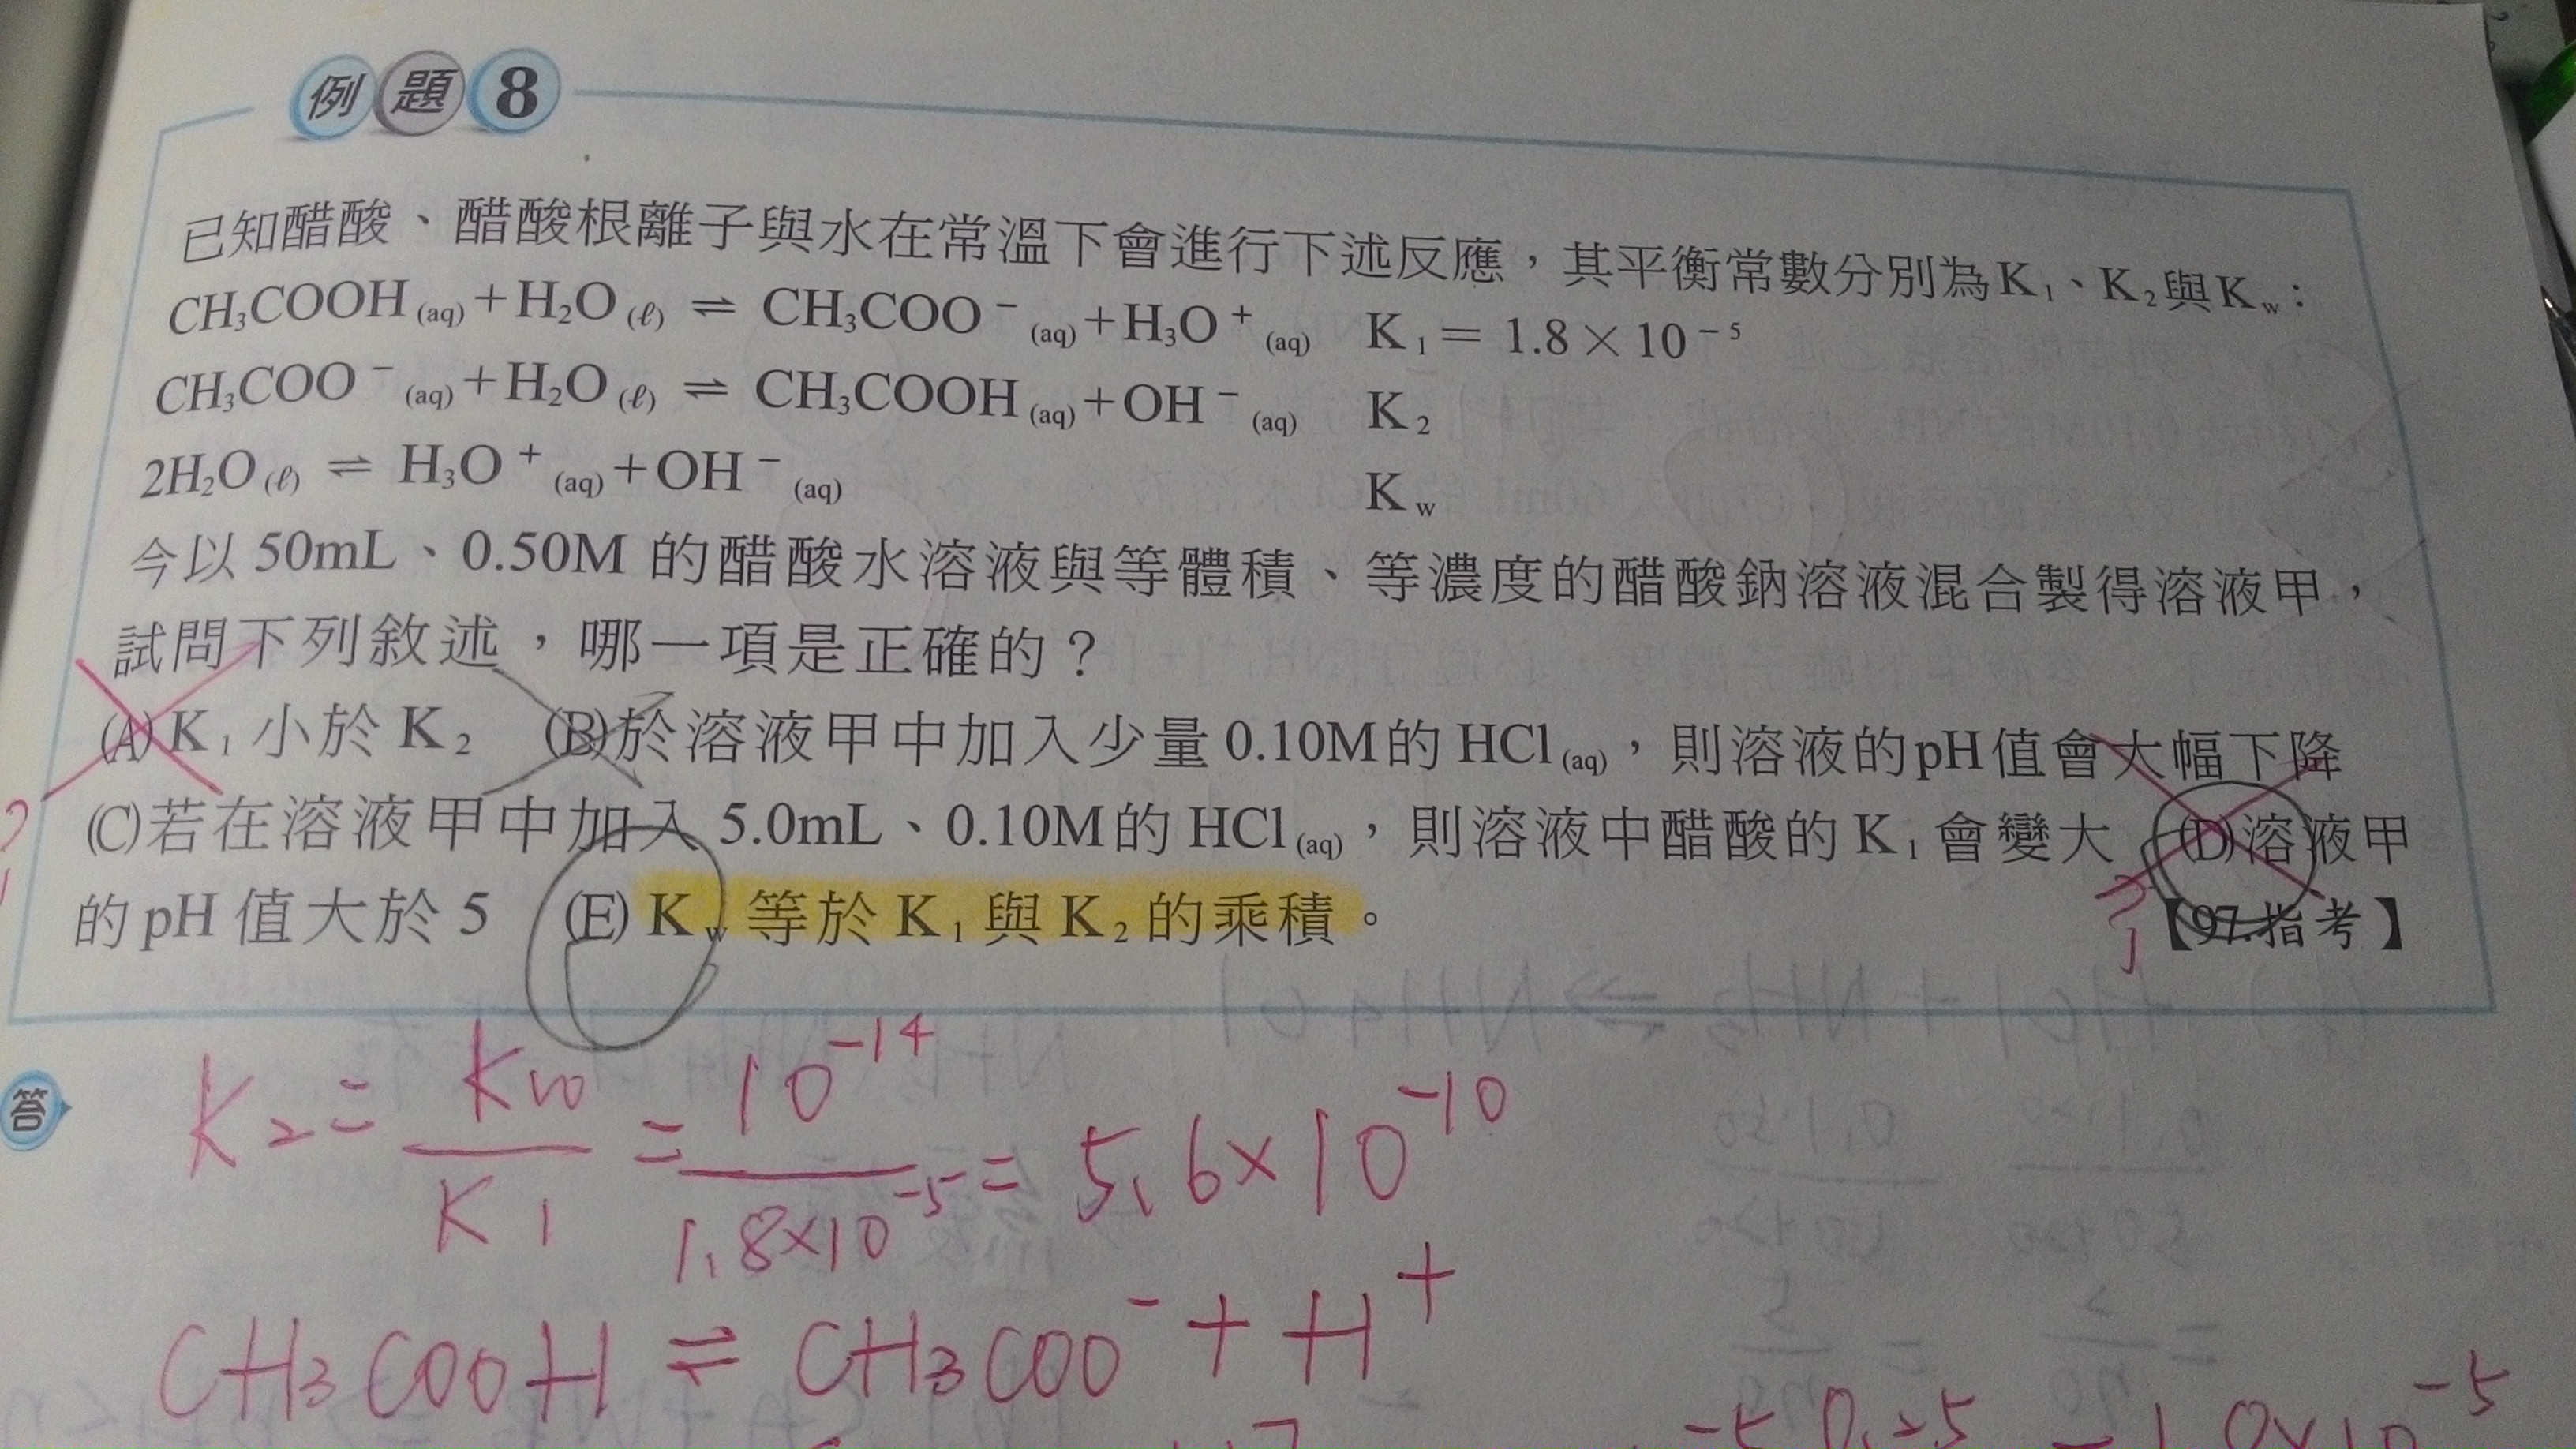 例題8
已知醋酸、醋酸根離子與水在常溫下會進行下述反應，其平衡常數分別為K₁、K₂與Kw：
CH₃COOH(aq)+H₂O(ℓ) ⇌ CH₃COO⁻(aq)+H₃O⁺(aq) K₁＝1.8×10⁻⁵
CH₃COO⁻(aq)+H₂O(ℓ) ⇌ CH₃COOH(aq)+OH⁻(aq) K₂
2H₂O(ℓ) ⇌ H₃O⁺(aq)+OH⁻(aq) Kw
今以50mL、0.50M的醋酸水溶液與等體積、等濃度的醋酸鈉溶液混合製得溶液甲，
試問下列敘述，哪一項是正確的？
(A)K₁小於K₂ (B)於溶液甲中加入少量0.10M的HCl(aq)，則溶液的pH值會大幅下降
(C)若在溶液甲中加入5.0mL、0.10M的HCl(aq)，則溶液中醋酸的K₁會變大 (D)溶液甲
的pH值大於5 (E)Kw等於K₁與K₂的乘積。 【97.指考】
答
K₂=Kw/K1=10⁻¹⁴/1.8×10⁻⁵=5.6×10⁻¹⁰
CH₃COOH⇌CH₃COO⁻+H⁺